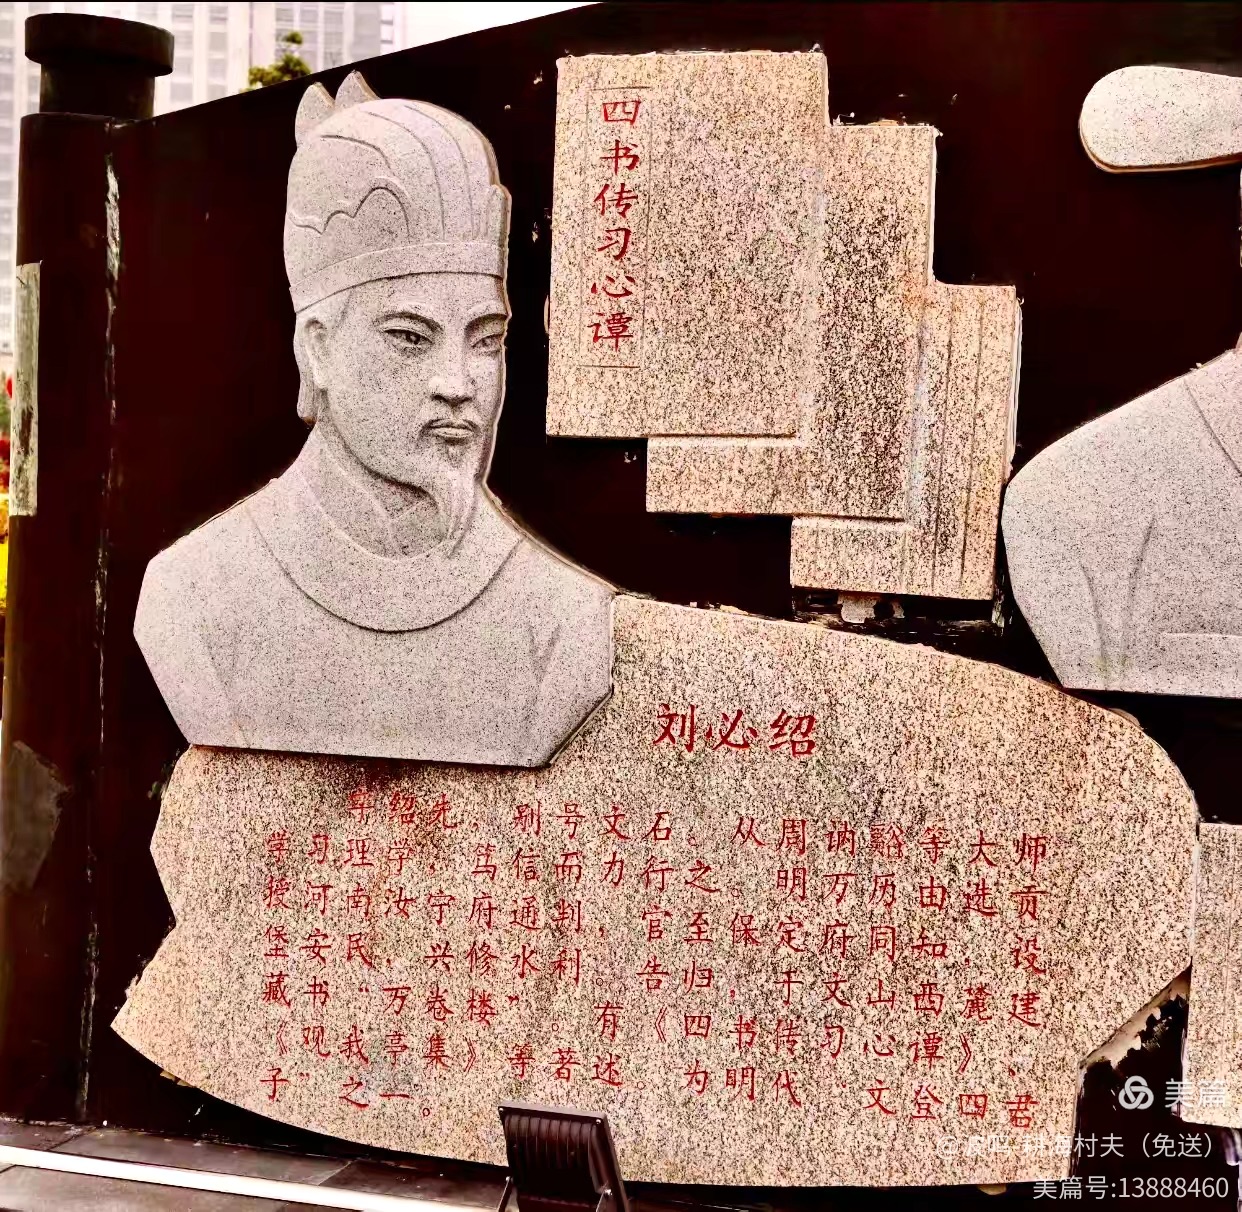 四书传习心谭
刘必绍
字绍先，别号文石、从周讷谿等大师
学习理学，笃信而力行之。明万历由选贡
授河南汝宁府通判，官至保定府同知，设
堡安民，兴修水利。告归，于文山西麓建
藏书“万卷楼”。有《四书传习心谭》、
《观我亭集》等著述。为明代文登四君
子之一。
美篇
耕海村夫（免送）
美篇号:13888460